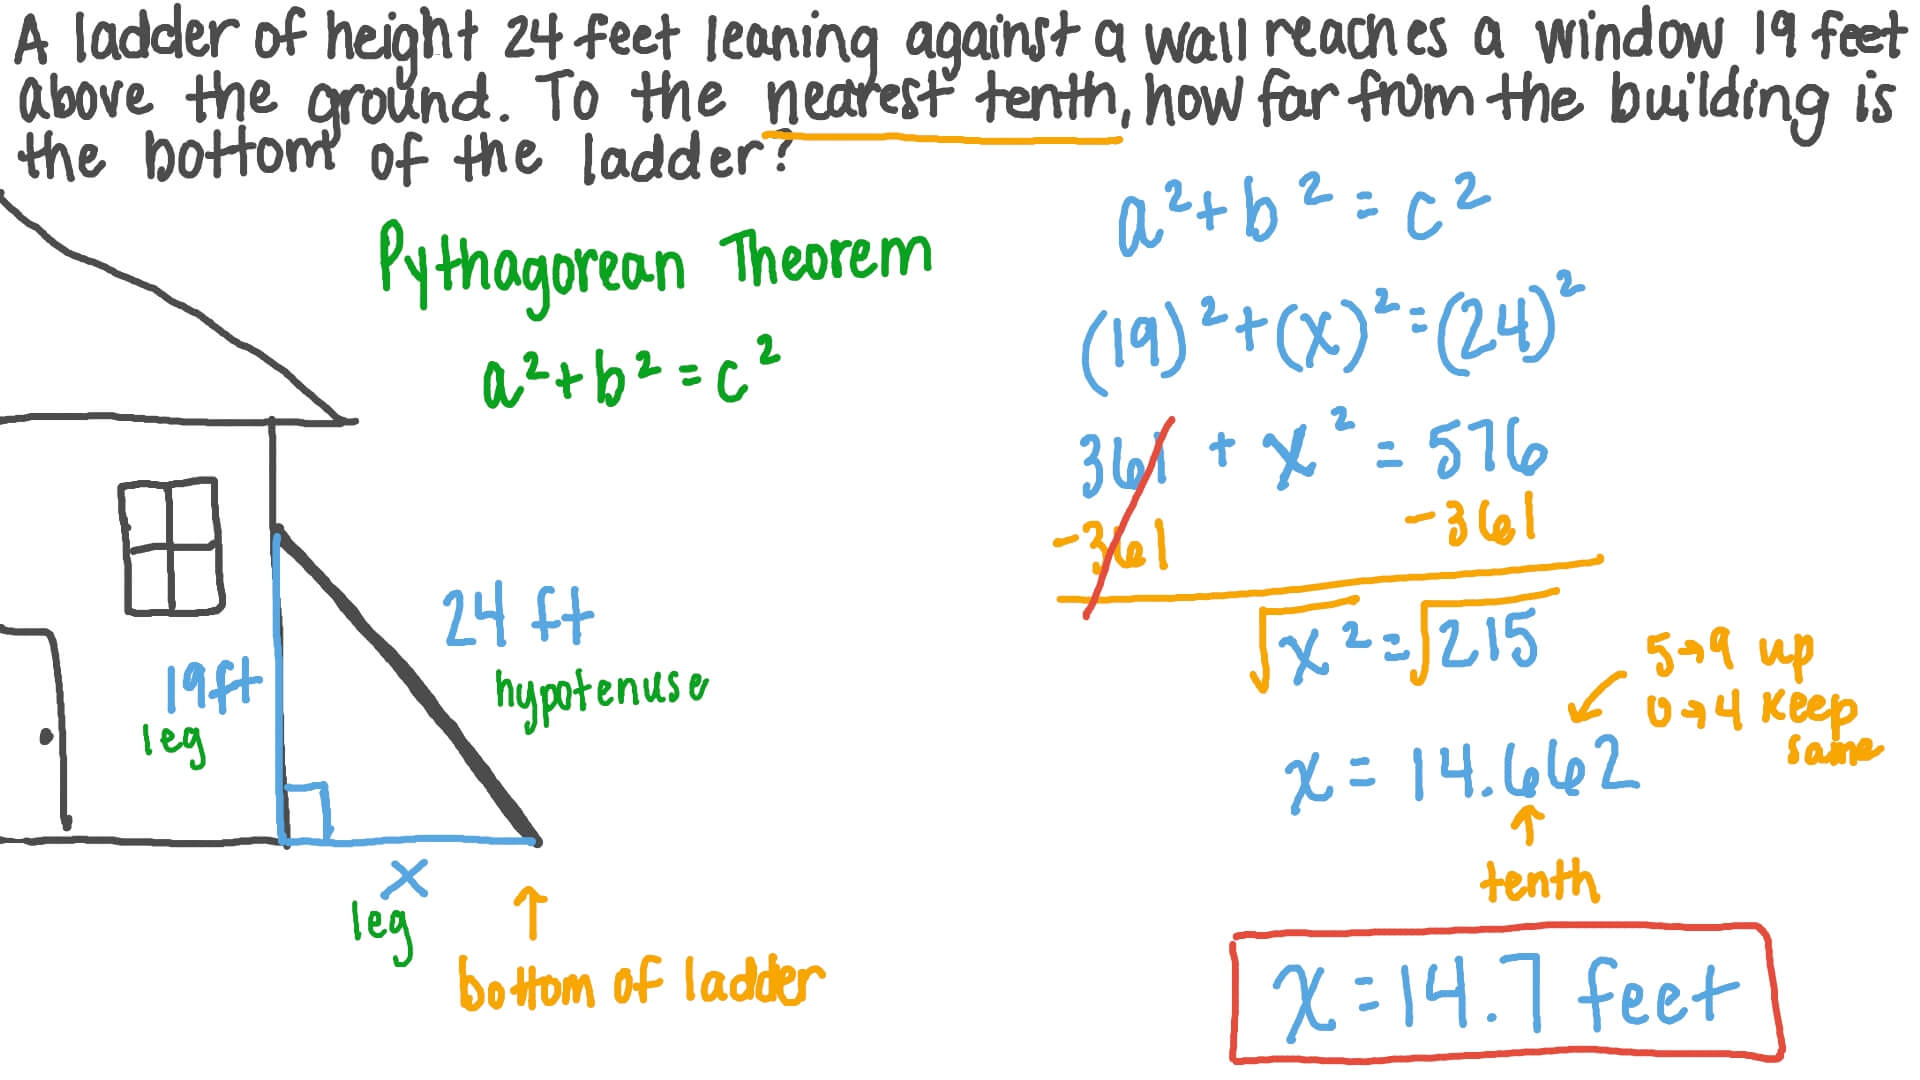 A ladder of height 24 feet leaning against a wall reaches a window 19 feet
above the ground. To the nearest tenth, how far from the building is
the bottom of the ladder?
Pythagorean Theorem
a² + b² = c²
19ft
leg
24 ft
hypotenuse
x
leg
↑
bottom of ladder
a² + b² = c²
(19)² + (x)² = (24)²
361 + x² = 576
-361 -361
√x² = √215
5→9 up
0→4 keep
same
x = 14.662
↑
tenth
x = 14.7 feet